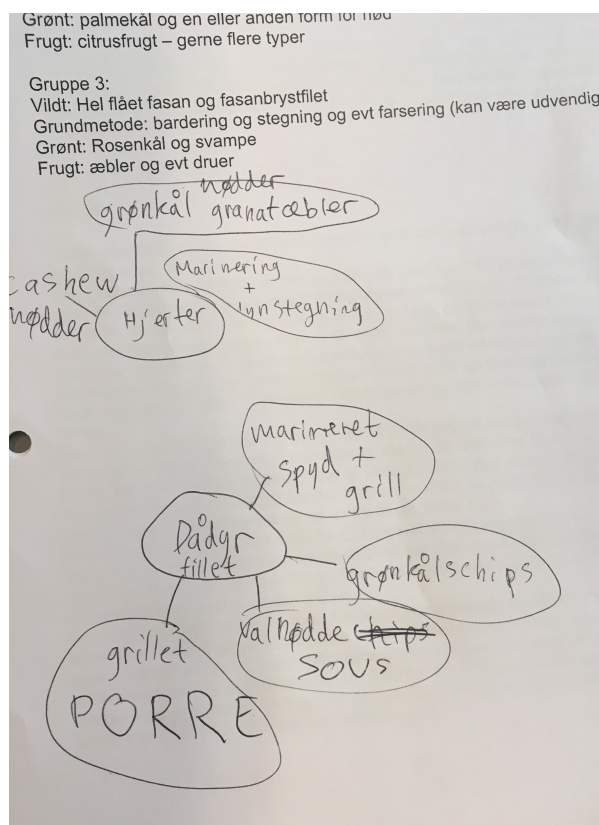 Grønt: palmekål og en eller anden form for nød
Frugt: citrusfrugt – gerne flere typer
Gruppe 3:
Vildt: Hel flået fasan og fasanbrystfilet
Grundmetode: bardering og stegning og evt farsering (kan være udvendig
Grønt: Rosenkål og svampe
Frugt: æbler og evt druer
nødder
grønkål granatæbler
Marinering
+
lynstegning
cashew
nødder
Hjerter
marineret
spyd +
grill
Dådyr
fillet
grønkålschips
valnødde chips
sovs
grillet
PORRE